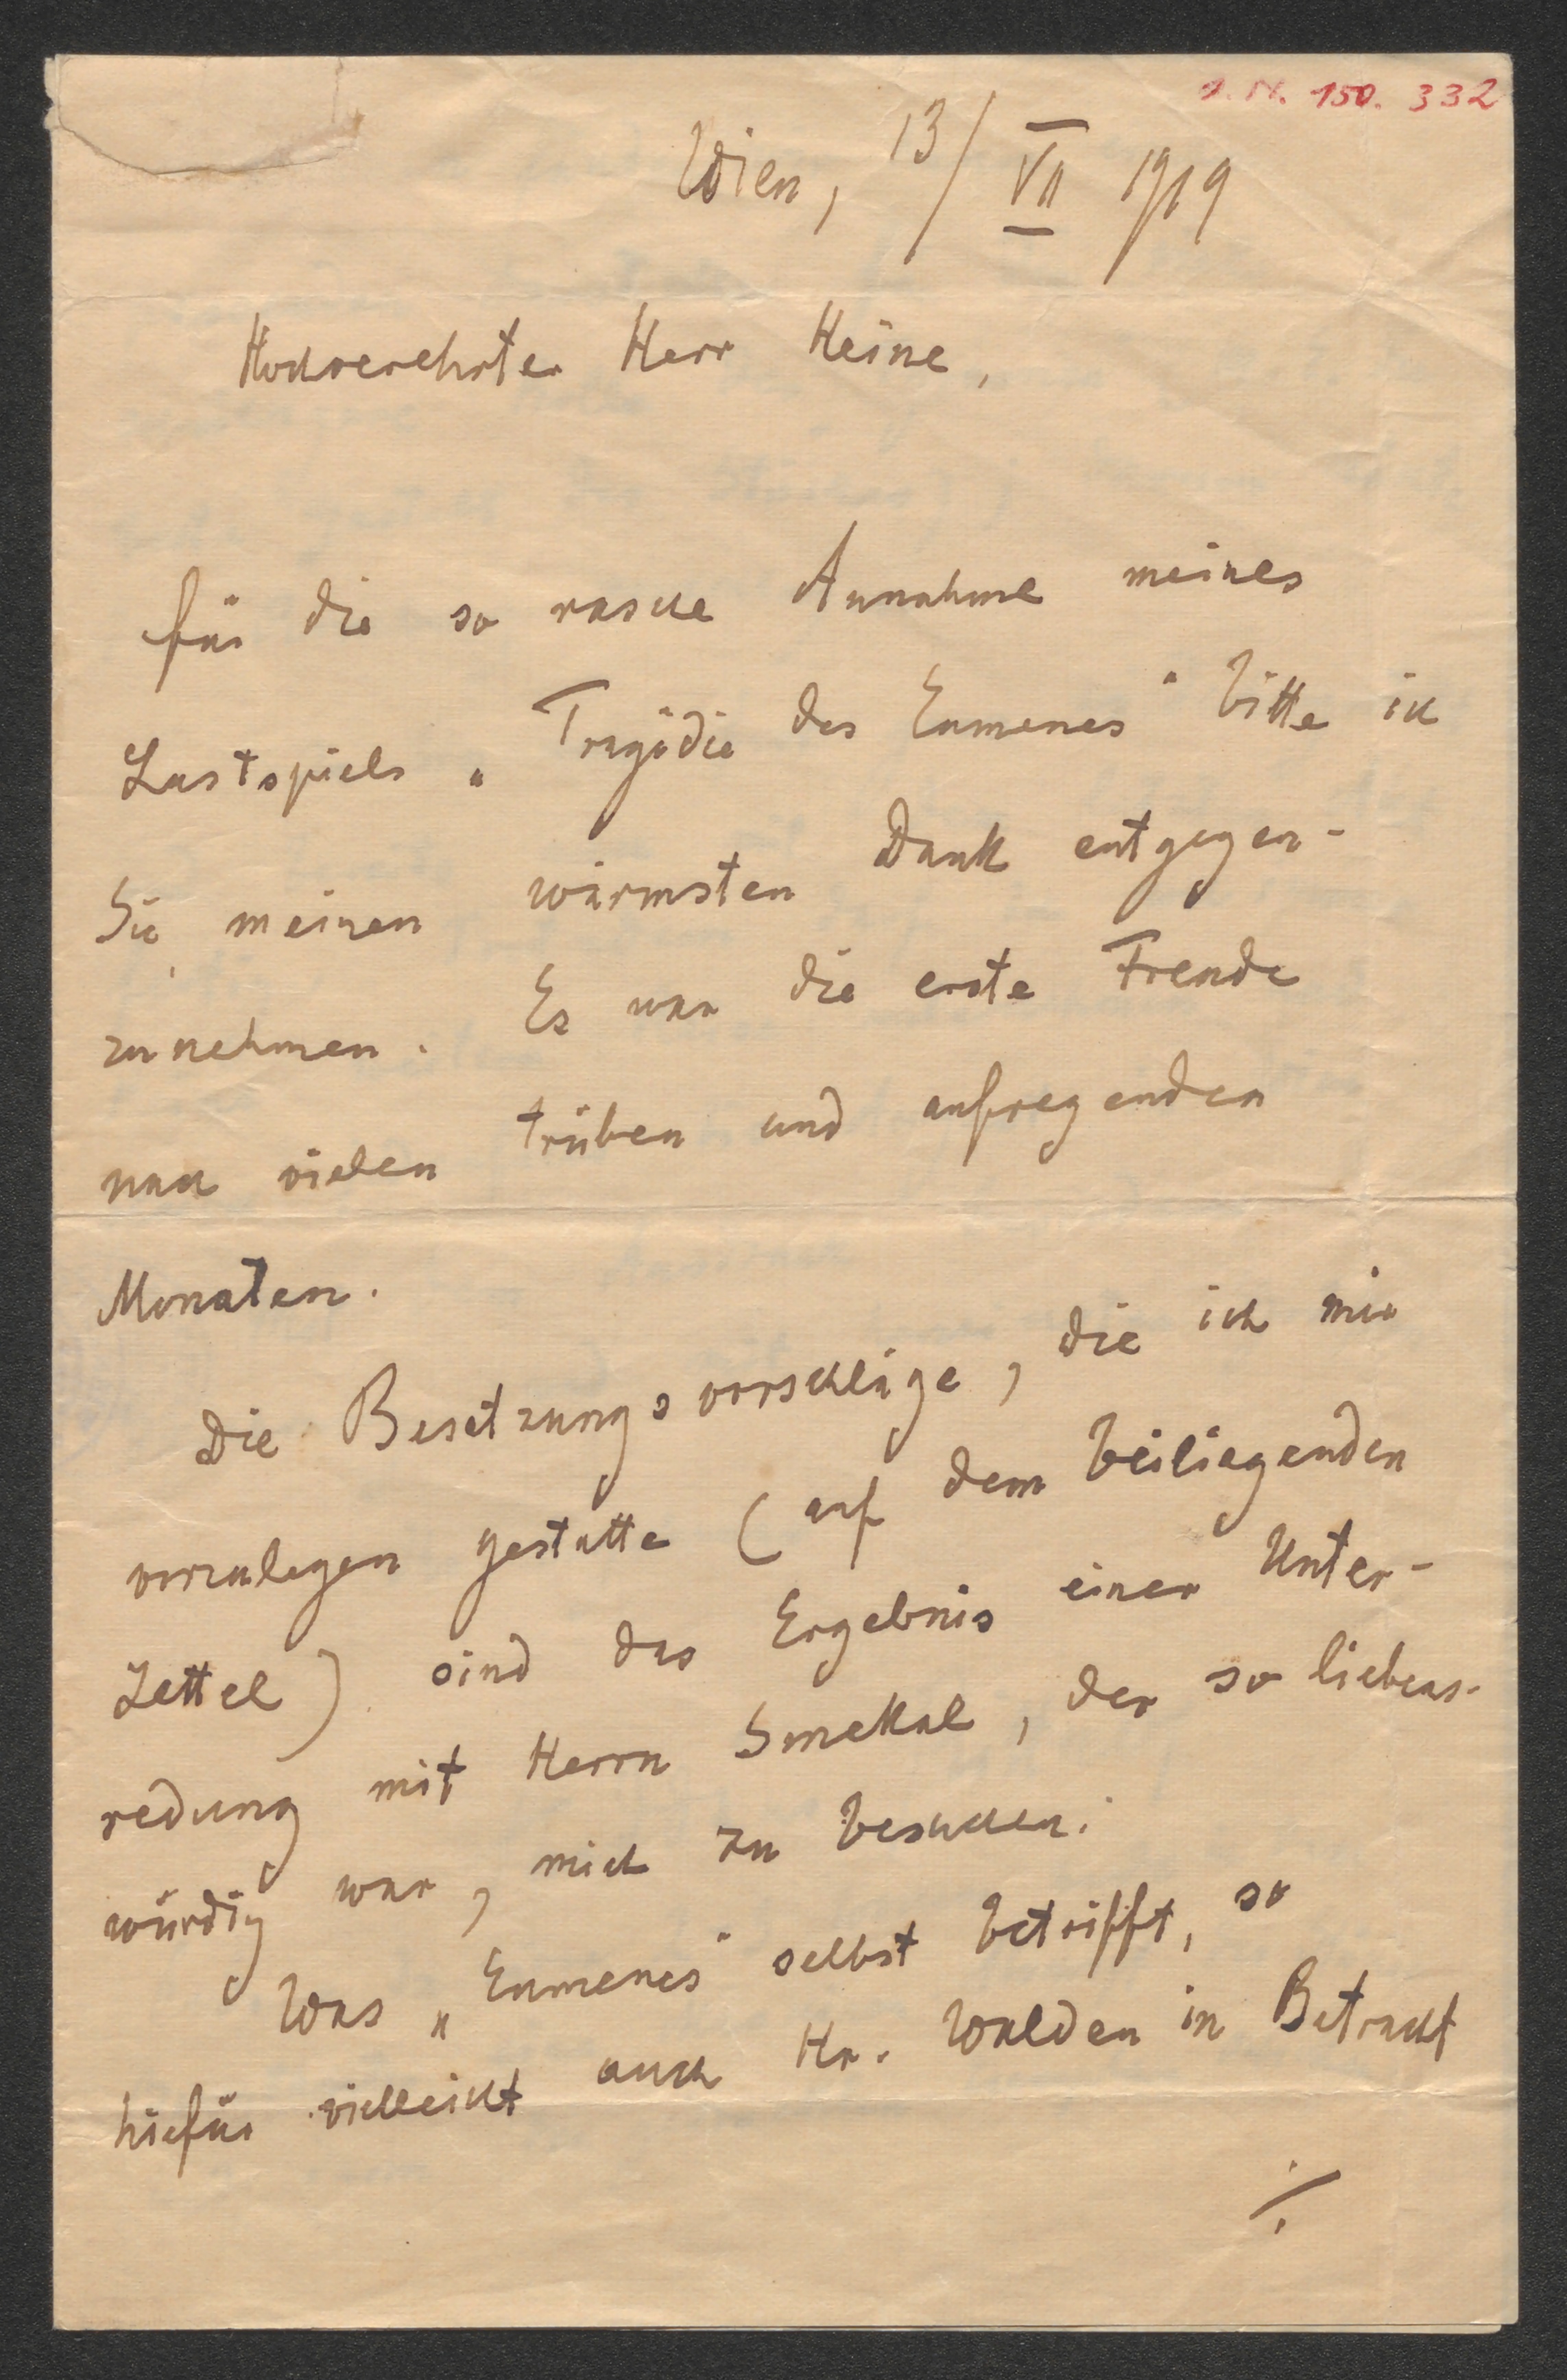 I. N. 150.332
Wien, 13/VII 1919
Hochverehrter Herr Heine,
für die so rasche Annahme meines
Lustspiels „Tragödie des Eumenes" bitte ich
Sie meinen wärmsten Dank entgegen-
zunehmen. Es war die erste Freude
nach vielen trüben und aufregenden
Monaten.
Die Besetzungsvorschläge, die ich mir
vorzulegen gestatte (auf dem beiliegenden
Zettel) sind das Ergebnis einer Unter-
redung mit Herrn Smekal, der so liebens-
würdig war, mich zu besuchen.
Was „Eumenes" selbst betrifft, so
hiefür vielleicht auch Hr. Walden in Betracht
./.